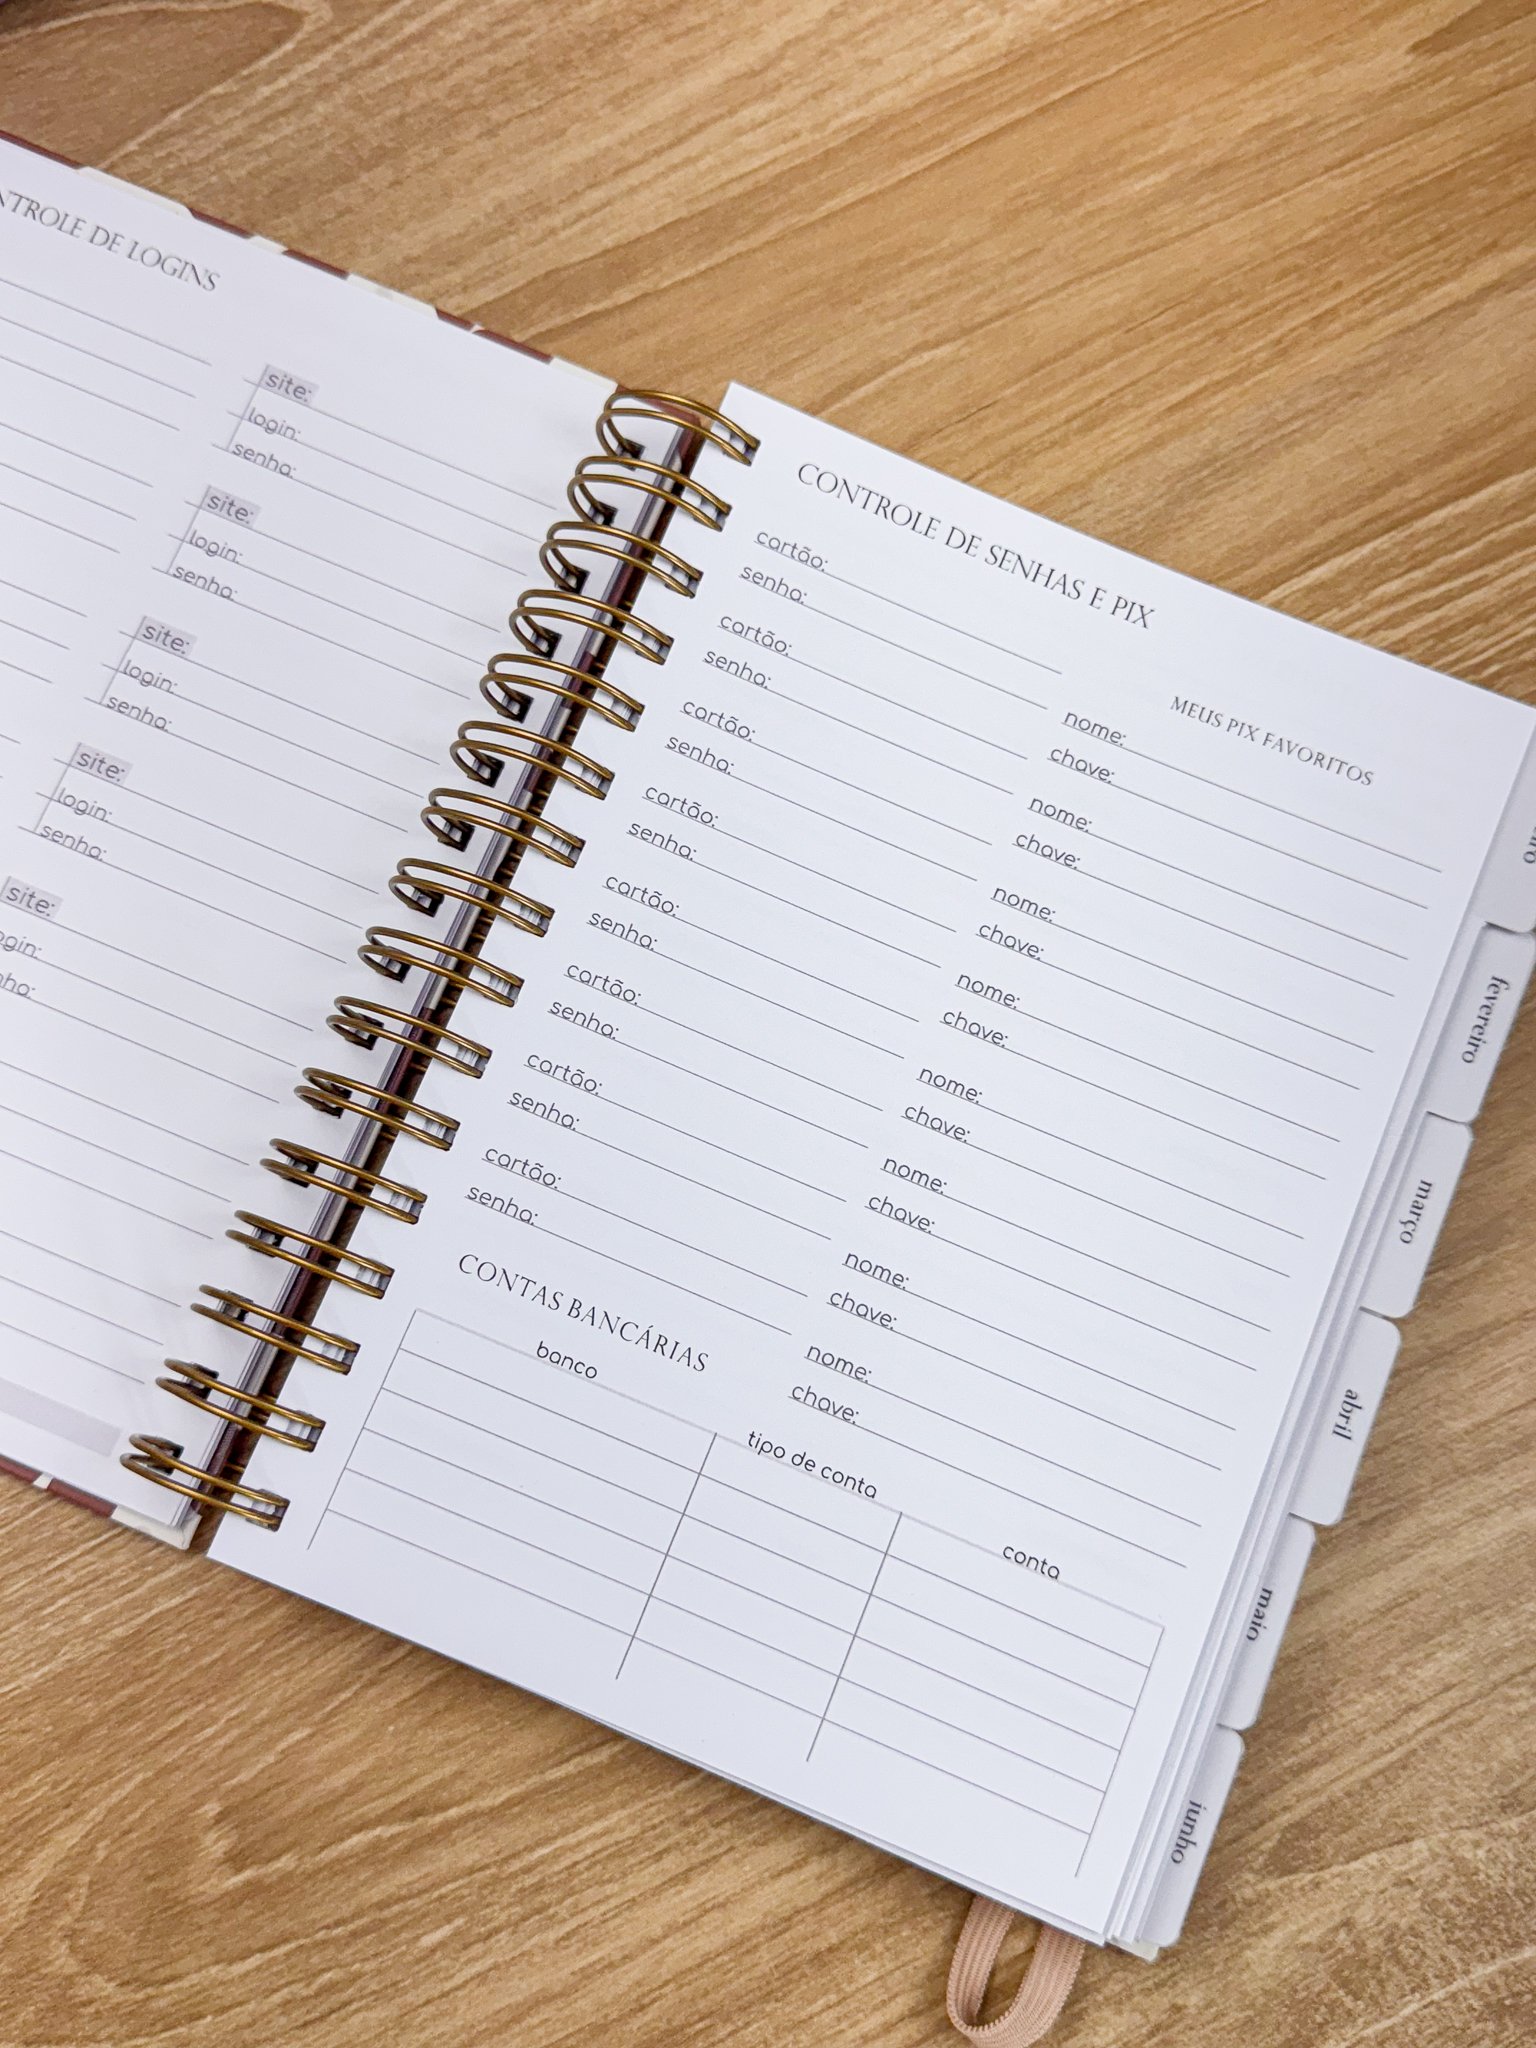 NTROLE DE LOGINS
site:
login:
senha:
site:
login:
senha:
site:
login:
senha:
site:
login:
senha:
site:
ogin:
nha:
CONTROLE DE SENHAS E PIX
cartão:
senha:
cartão:
senha:
cartão:
senha:
cartão:
senha:
cartão:
senha:
cartão:
senha:
cartão:
senha:
cartão:
senha:
MEUS PIX FAVORITOS
nome:
chave:
nome:
chave:
nome:
chave:
nome:
chave:
nome:
chave:
nome:
chave:
nome:
chave:
nome:
chave:
CONTAS BANCÁRIAS
banco
tipo de conta
conta
iro
fevereiro
março
abril
maio
junho